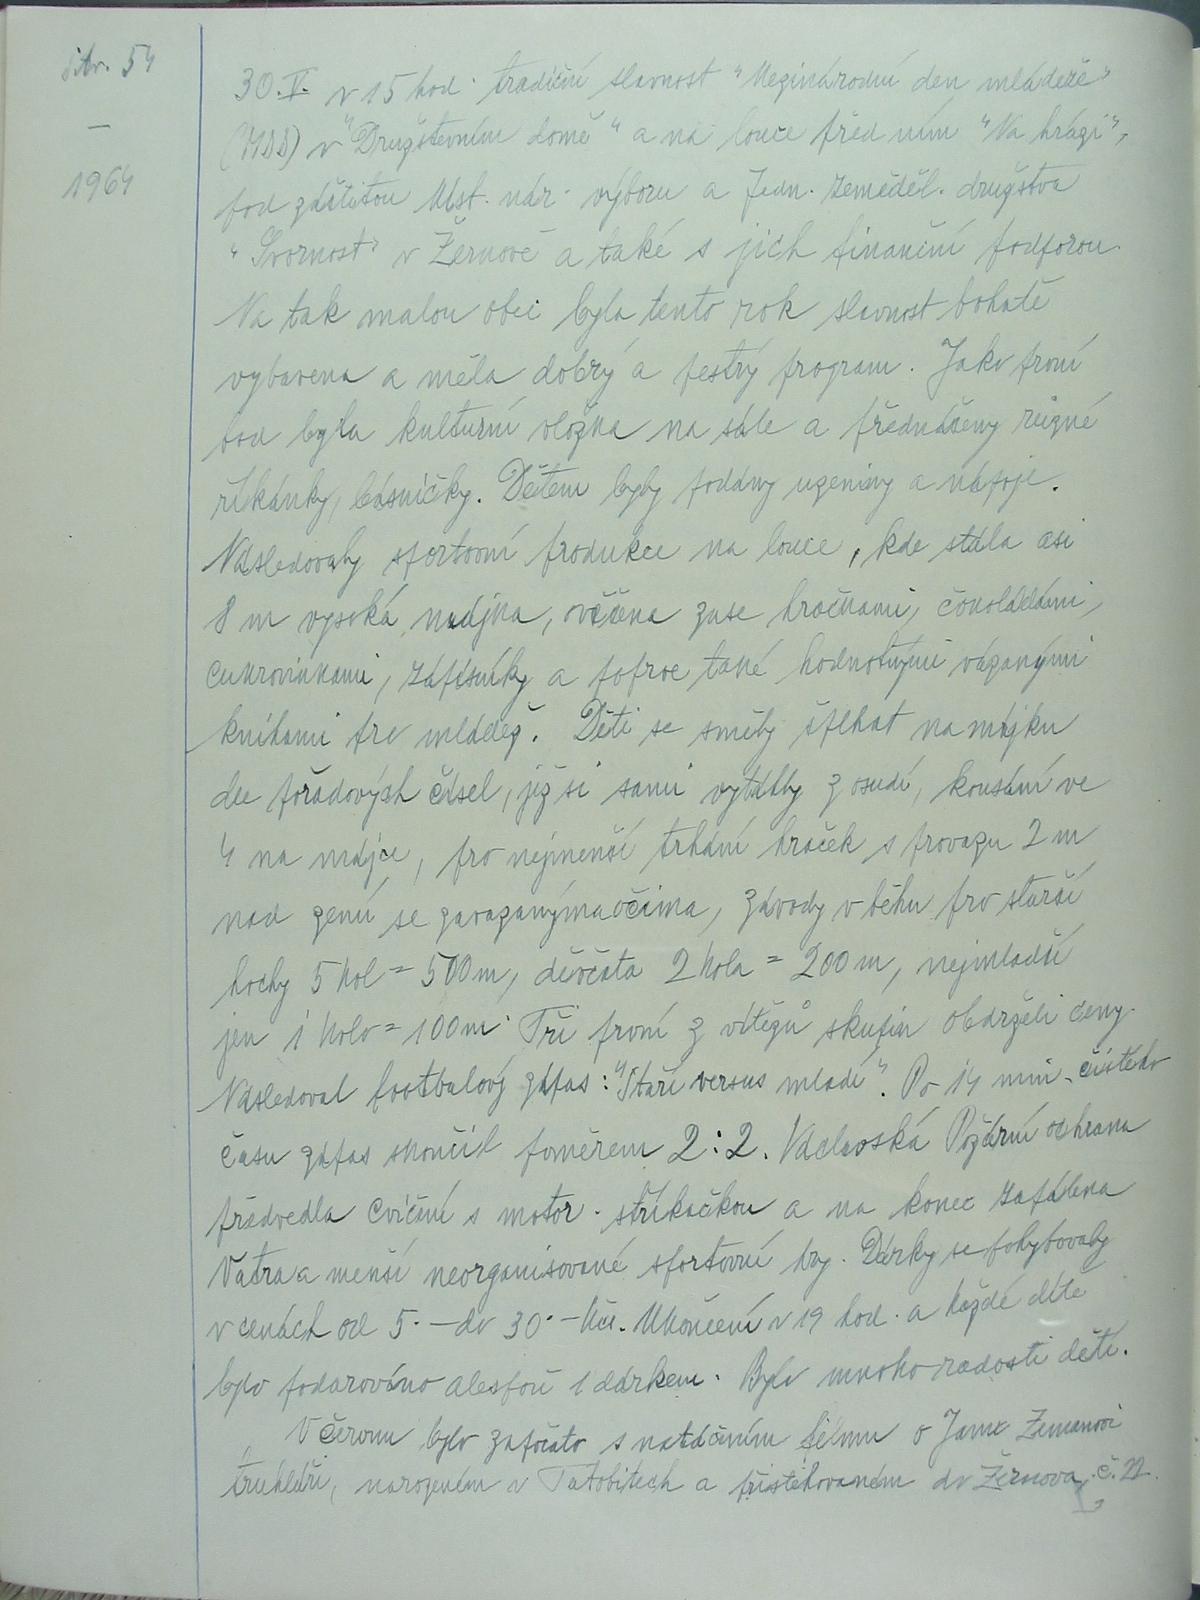 str. 54
—
1964
30.V. v 15 hod. tradiční slavnost "Mezinárodní den mládeže"
(MDD) v "Družstevním domě" a na louce před ním "Na hrázi",
pod záštitou Míst. nár. výboru a Jedn. zeměděl. družstva
"Svornost" v Žernově a také s jich finanční podporou.
Na tak malou obci byla tento rok slavnost bohatě
vybavena a měla dobrý a pestrý program. Jako první
bod byla kulturní vložka na sále a přednášeny různé
říkánky, básničky. Dětem byly podány uzeniny a nápoje.
Následovaly sportovní produkce na louce, kde stála asi
8 m vysoká májka, ověšena zase hračkami, čokoládami,
cukrovinkami, zápisníky a poprve také hodnotnými vázanými
knihami pro mládež. Děti se směly šplhat na májku
dle pořadových čísel, jež si sami vytáhly z osudí, kousání ve
4 na májce, pro nejmenší trhání hraček s provazu 2 m
nad zemí se zavázanýma očima, závody v běhu pro starší
hochy 5 kol = 500 m, děvčata 2 kola = 200 m, nejmladší
jen 1 kolo = 100 m. Tři první z vítězů skupin obdrželi ceny.
Následoval footbalový zápas: "Staří versus mladí". Po 14 min. čistého
času zápas skončil poměrem 2:2. Václavská Požární ochrana
předvedla cvičení s motor. stříkačkou a na konec zapálena
Vatra a menší neorganisované sportovní hry. Dárky se pohybovaly
v cenách od 5.– do 30.– Kčs. Ukončení v 19 hod. a každé dítě
bylo podarováno alespoň 1 dárkem. Bylo mnoho radosti dětí.
V červnu bylo započato s natáčením filmu o Janu Zemanovi
truhláři, narozeném v Tatobitech a přistěhovaném do Žernova, č. 22.